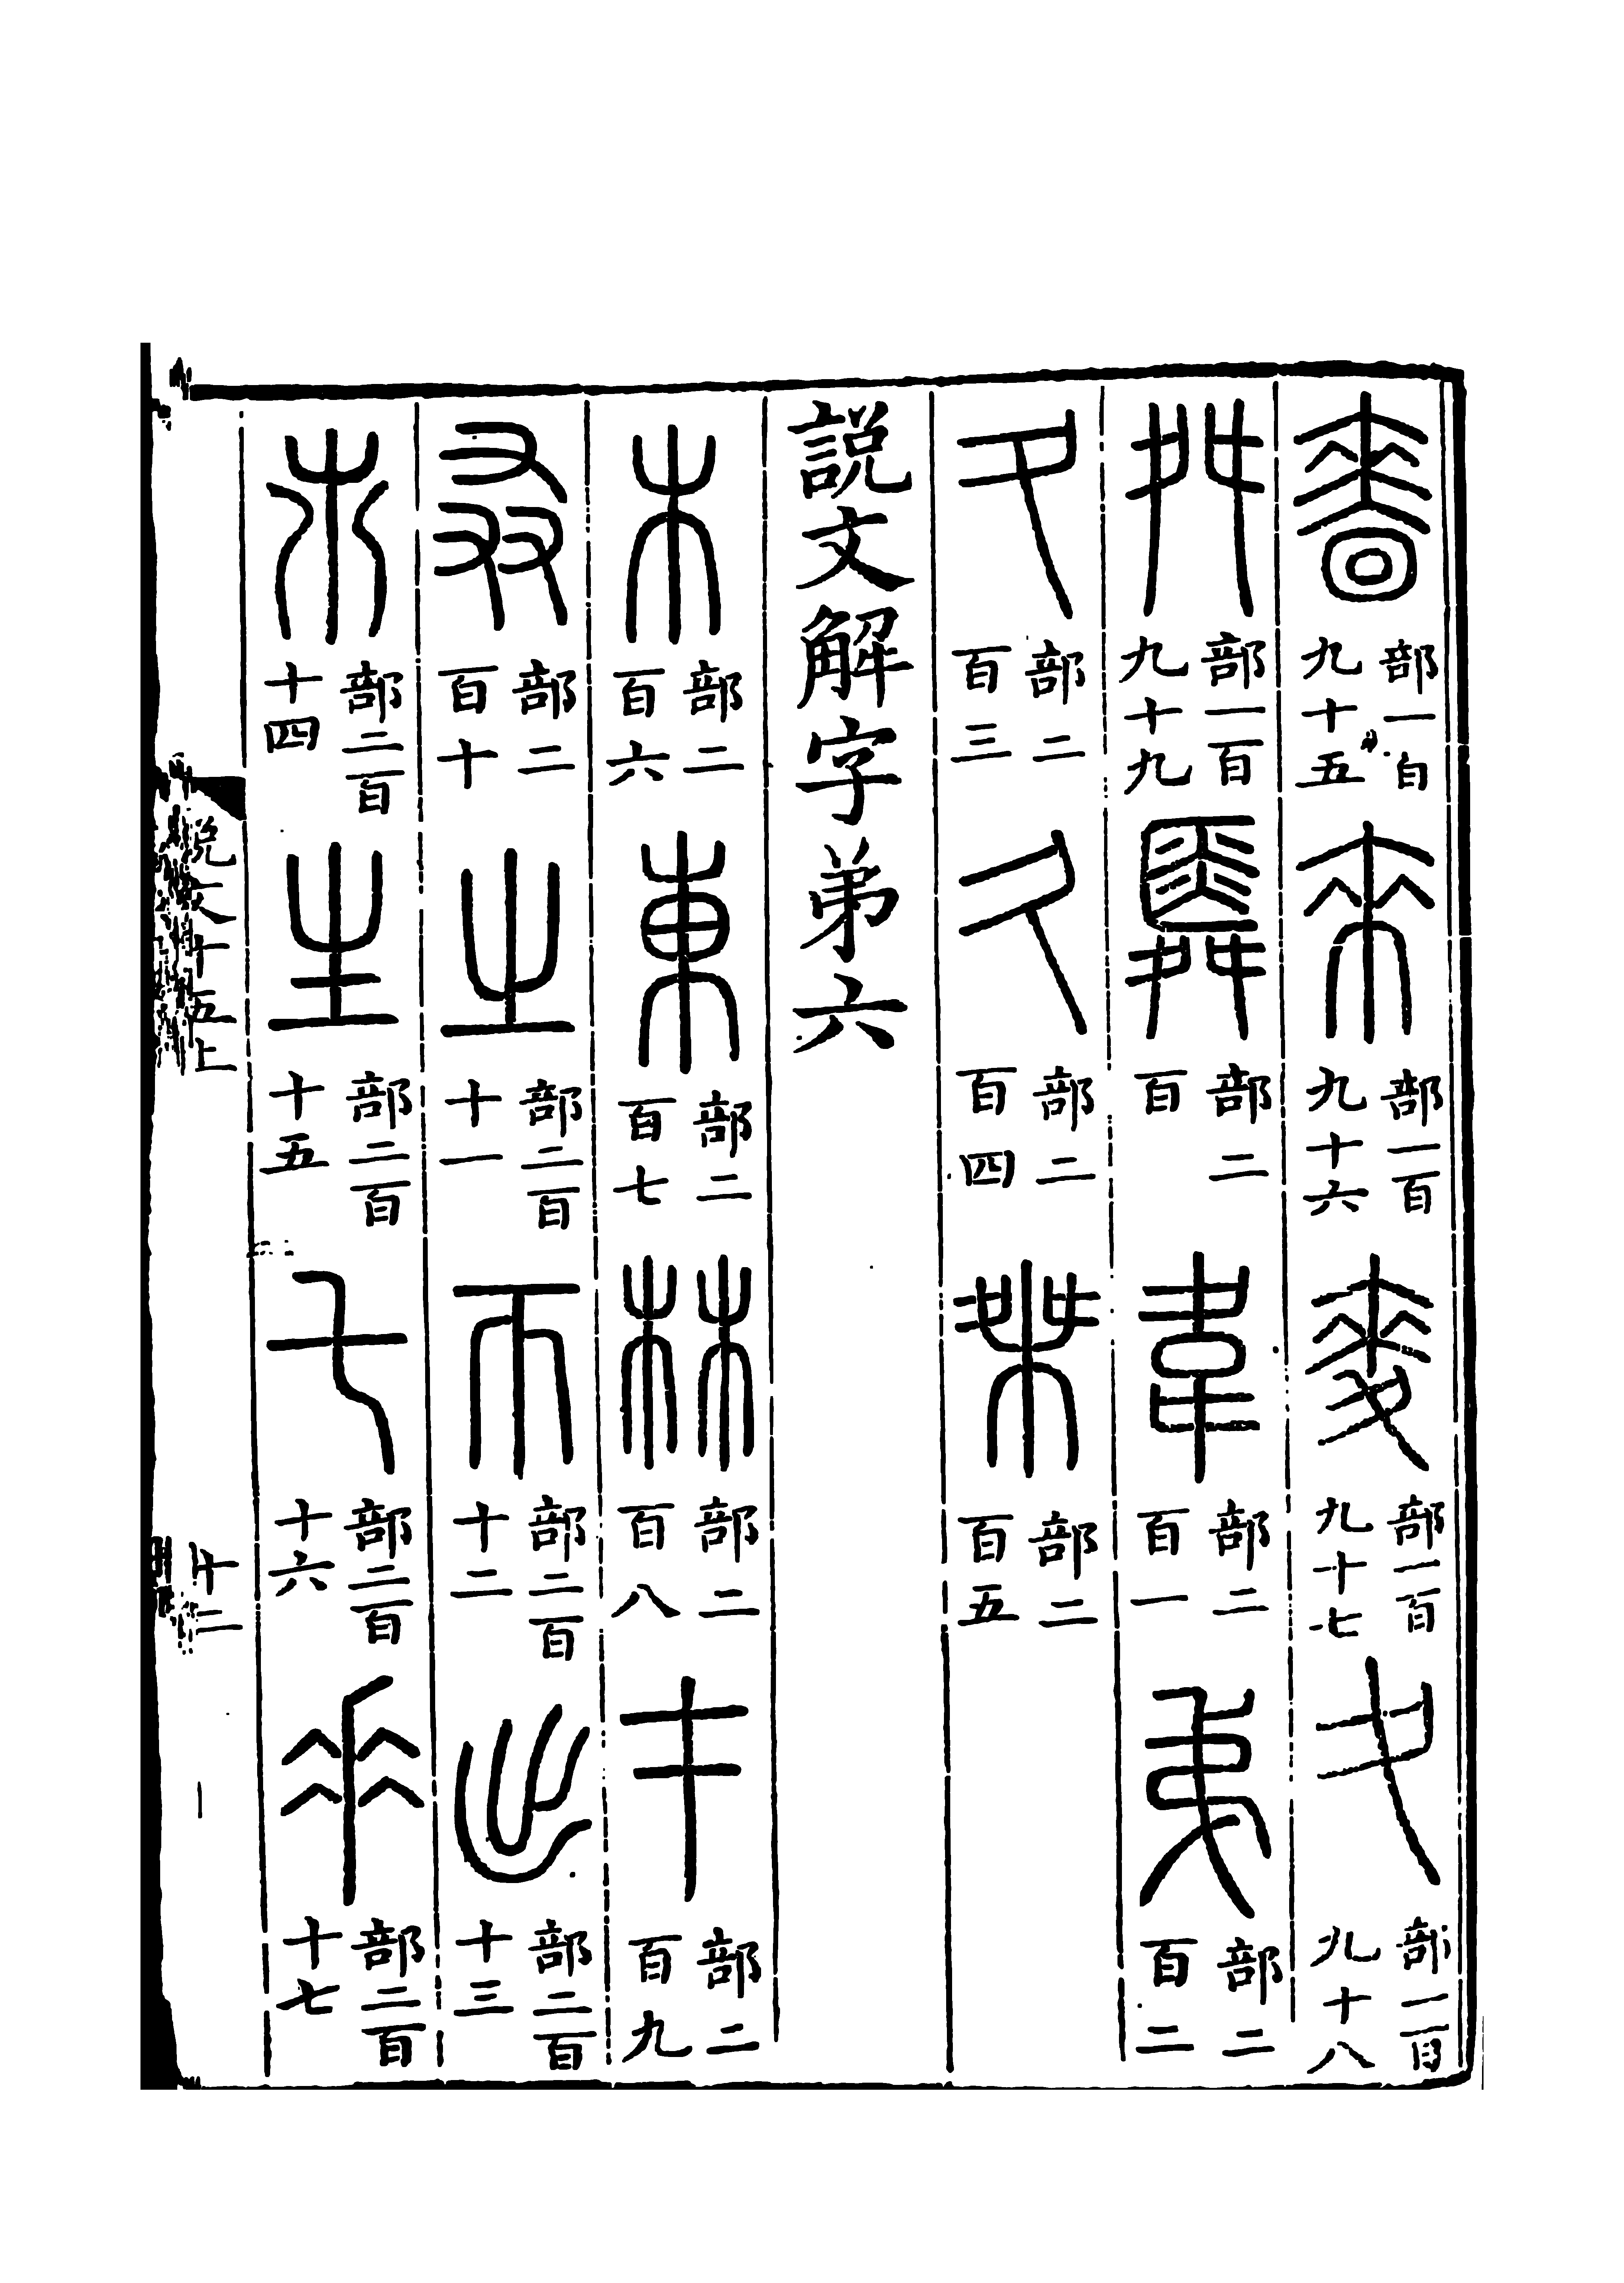 嗇部一百九十五來部一百九十六麥部一百九十七夊部一百九十八
舛部一百九十九舜部二百韋部二百一弟部二百二
夂部二百三久部二百四桀部二百五
説文解字弟六
木部二百六東部二百七林部二百八才部二百九
叒部二百十之部二百十一帀部二百十二出部二百十三
𣎵部二百十四生部二百十五乇部二百十六𠂹部二百十七
説文十五上 十二